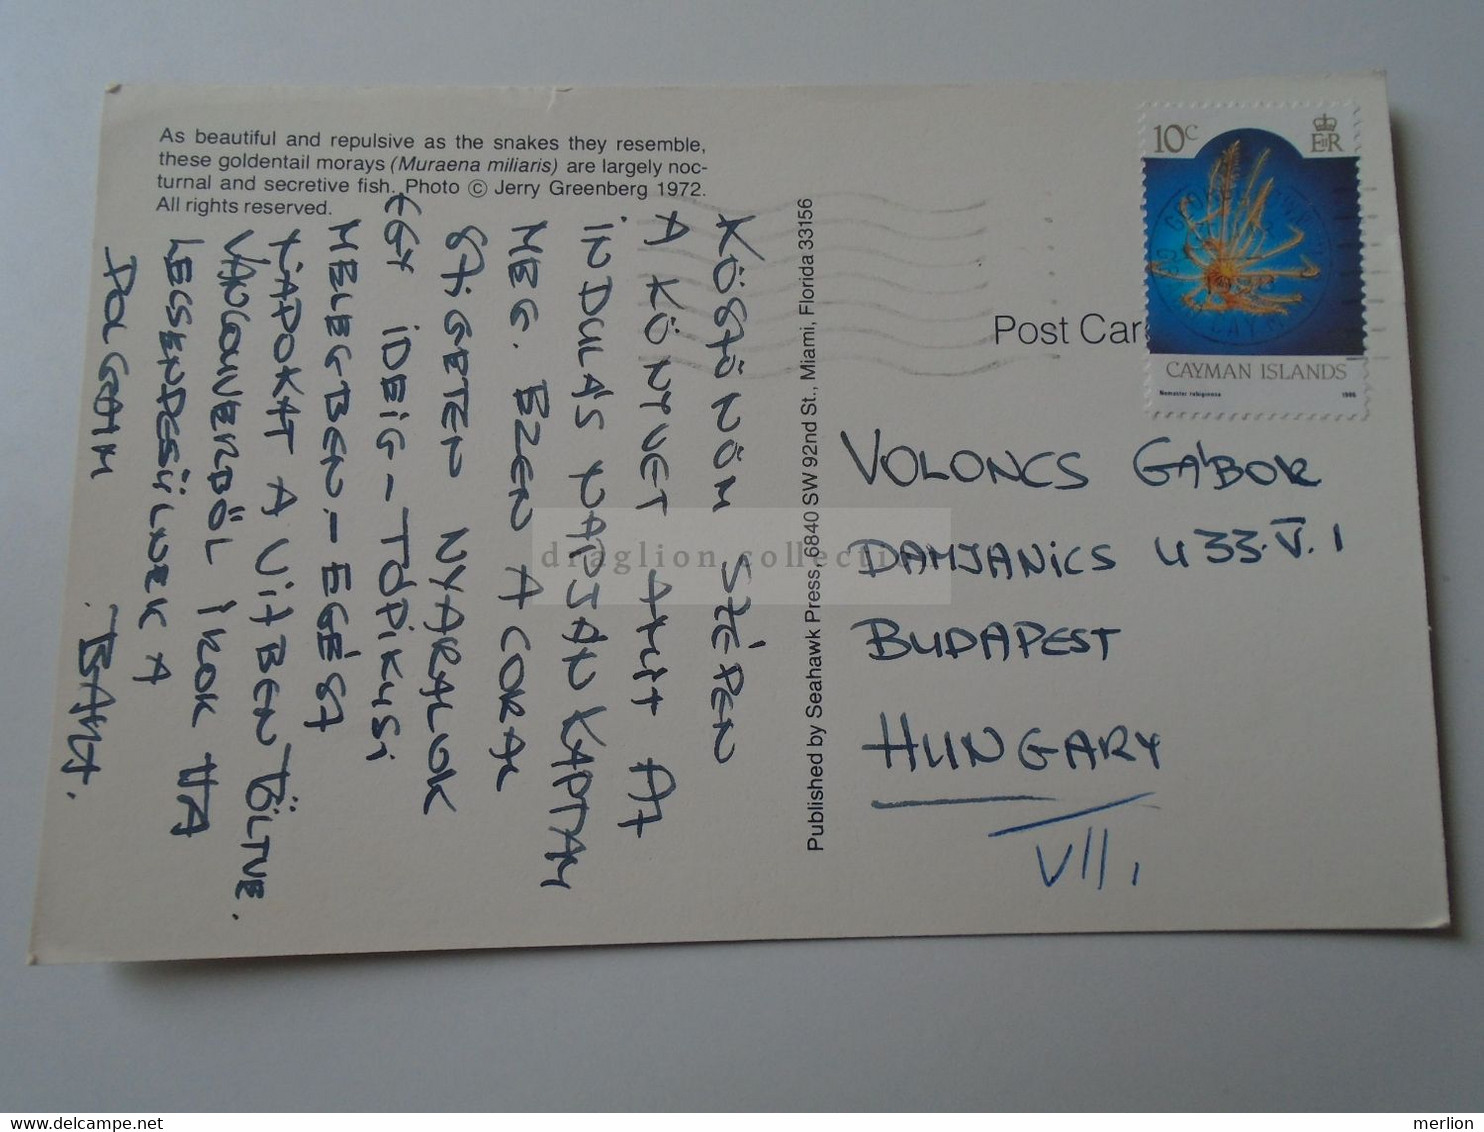 As beautiful and repulsive as the snakes they resemble,
these goldentail morays (Muraena miliaris) are largely noc-
turnal and secretive fish. Photo © Jerry Greenberg 1972.
All rights reserved.
KÖSZÖNÖM SZÉPEN
A KÖNYVET AMIT AZ
INDULÁS NAPJÁN KAPTAM
MEG. EZEN A CORAL
SZIGETEN NYARALOK
EGY IDEIG – TÓPIKUSI
MELEGBEN. – EGÉSZ
NAPOKAT A VIZBEN TÖLTVE.
VANCOUVERBÖL IROK HA
LECSENDESÜLNEK A
DOLGAIM.
Published by Seahawk Press, 6840 SW 92nd St., Miami, Florida 33156
Post Car
10c
EIIR
CAYMAN ISLANDS
Nemaster rubiginosa 1986
VOLONCS GÁBOR
DAMJANICS U 33. V. 1
BUDAPEST
HUNGARY
VII,
draglion collecti
merlion